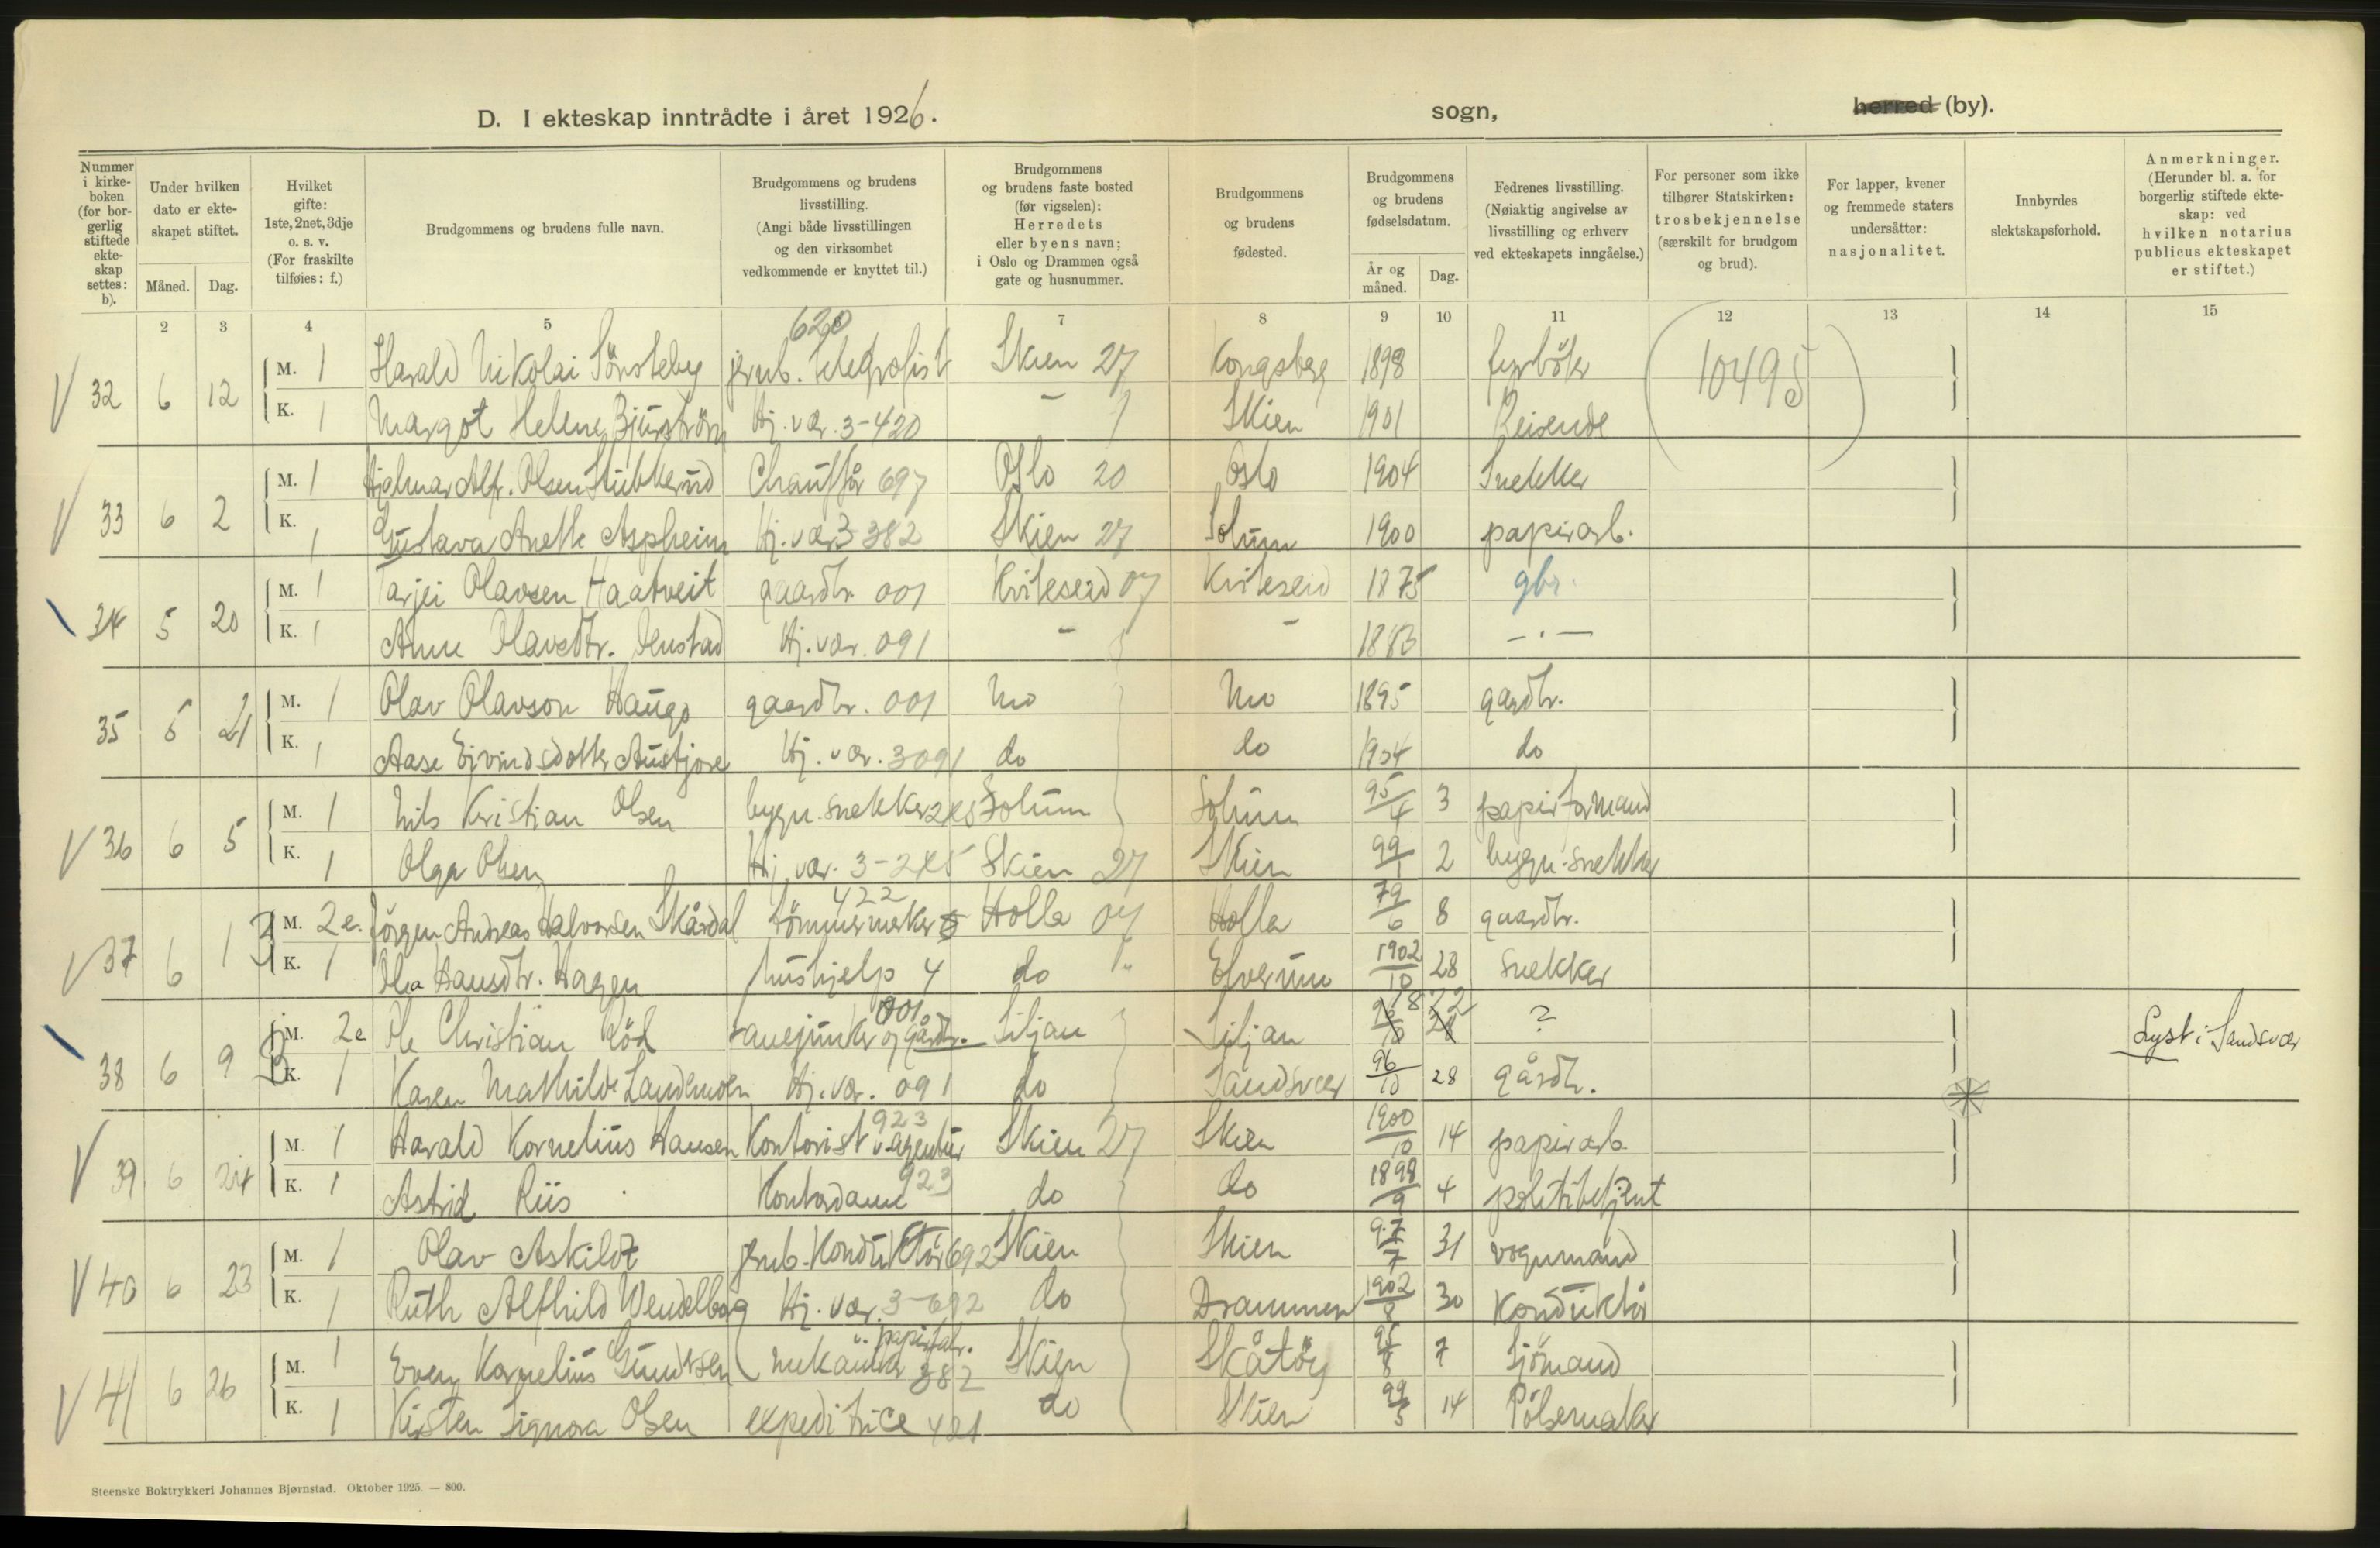 D. I ekteskap inntrådte i året 1926.
sogn,
herred (by).
Nummer i kirke-boken (for bor-gerlig stiftede ekte-skap settes: b).
Under hvilken dato er ekte-skapet stiftet.
Måned. Dag.
Hvilket gifte: 1ste, 2net, 3dje o. s. v. (For fraskilte tilføies: f.)
Brudgommens og brudens fulle navn.
Brudgommens og brudens livsstilling. (Angi både livsstillingen og den virksomhet vedkommende er knyttet til.)
Brudgommens og brudens faste bosted (før vigselen): Herredets eller byens navn; i Oslo og Drammen også gate og husnummer.
Brudgommens og brudens fødested.
Brudgommens og brudens fødselsdatum.
År og måned. Dag.
Fedrenes livsstilling. (Nøiaktig angivelse av livsstilling og erhverv ved ekteskapets inngåelse.)
For personer som ikke tilhører Statskirken: trosbekjennelse (særskilt for brudgom og brud).
For lapper, kvener og fremmede staters undersåtter: nasjonalitet.
Innbyrdes slektskapsforhold.
Anmerkninger. (Herunder bl. a. for borgerlig stiftede ekte-skap: ved hvilken notarius publicus ekteskapet er stiftet.)
2 3 4 5 7 8 9 10 11 12 13 14 15
620
V 32 6 12 M. 1 Harald Nikolai Sönsteby jernb. telegrafist Skien 27 Kongsberg 1898 fyrböter 10495
K. 1 Margot Helene Bjurström Hj. vær. 3-420 - Skien 1901 Reisende
V 33 6 2 M. 1 Hjalmar Alf. Olsen Stubberud Chauffør 697 Oslo 20 Oslo 1904 Snekker
K. 1 Gustava Anette Aspheim Hj. vær 3 382 Skien 27 Solum 1900 papirarb.
34 5 20 M. 1 Tarjei Olavsen Haatveit gaardbr. 001 Kviteseid 07 Kviteseid 1875 gbr.
K. 1 Anne Olavsdtr. Hj. vær. 091 - - 1883 -·-
35 5 21 M. 1 Olav Olavson Haugo gaardbr. 001 Mo Mo 1895 gardbr.
K. 1 Aase Eivindsdotter Austjore Hj. vær. 3091 do do 1904 do
V 36 6 5 M. 1 Nils Kristian Olsen bygn. snekker 285 Solum Solum 95/4 3 papirformand
K. 1 Olga Olsen Hj. vær. 3-285 Skien 27 Skien 99/1 2 bygn. snekker
422
V 37 6 13 M. 2 e. Jörgen Andreas Halvorsen Skårdal tömmermerker Holla 07 Holla 79/6 8 gaardbr.
K. 1 Ola Hansdtr. Hagen hushjelp 4 do Elverum 1902/10 28 snekker
001
38 6 9 M. 2 e Ole Christian Röd og gårdbr. Siljan Siljan 78 22 ? Lyst i Sandsvær
K. 1 Karen Mathilde Landemoen Hj. vær. 091 do Sandsvær 96/10 28 gårdbr.
923
V 39 6 24 M. 1 Harald Kornelius Hansen Kontorist v. agentur Skien 27 Skien 1900/10 14 papirarb.
K. 1 Astrid Riis Kontordame 923 do do 1898/9 4 politibetjent
V 40 6 23 M. 1 Olav Askildt jernb. Konduktör 692 Skien Skien 97/7 31 vognmand
K. 1 Ruth Alfhild Wendelborg Hj. vær. 3-692 do Drammen 1902/8 30 Konduktör
v. papirfabr.
V 41 6 26 M. 1 Even Kornelius Gundersen mekaniker 382 Skien Skåtöy 95/8 7 Sjömand
K. 1 Kirsten Signora Olsen expeditrice 421 do Skien 99/5 14 Pölsemaker
Steenske Boktrykkeri Johannes Bjørnstad. Oktober 1925. — 800.